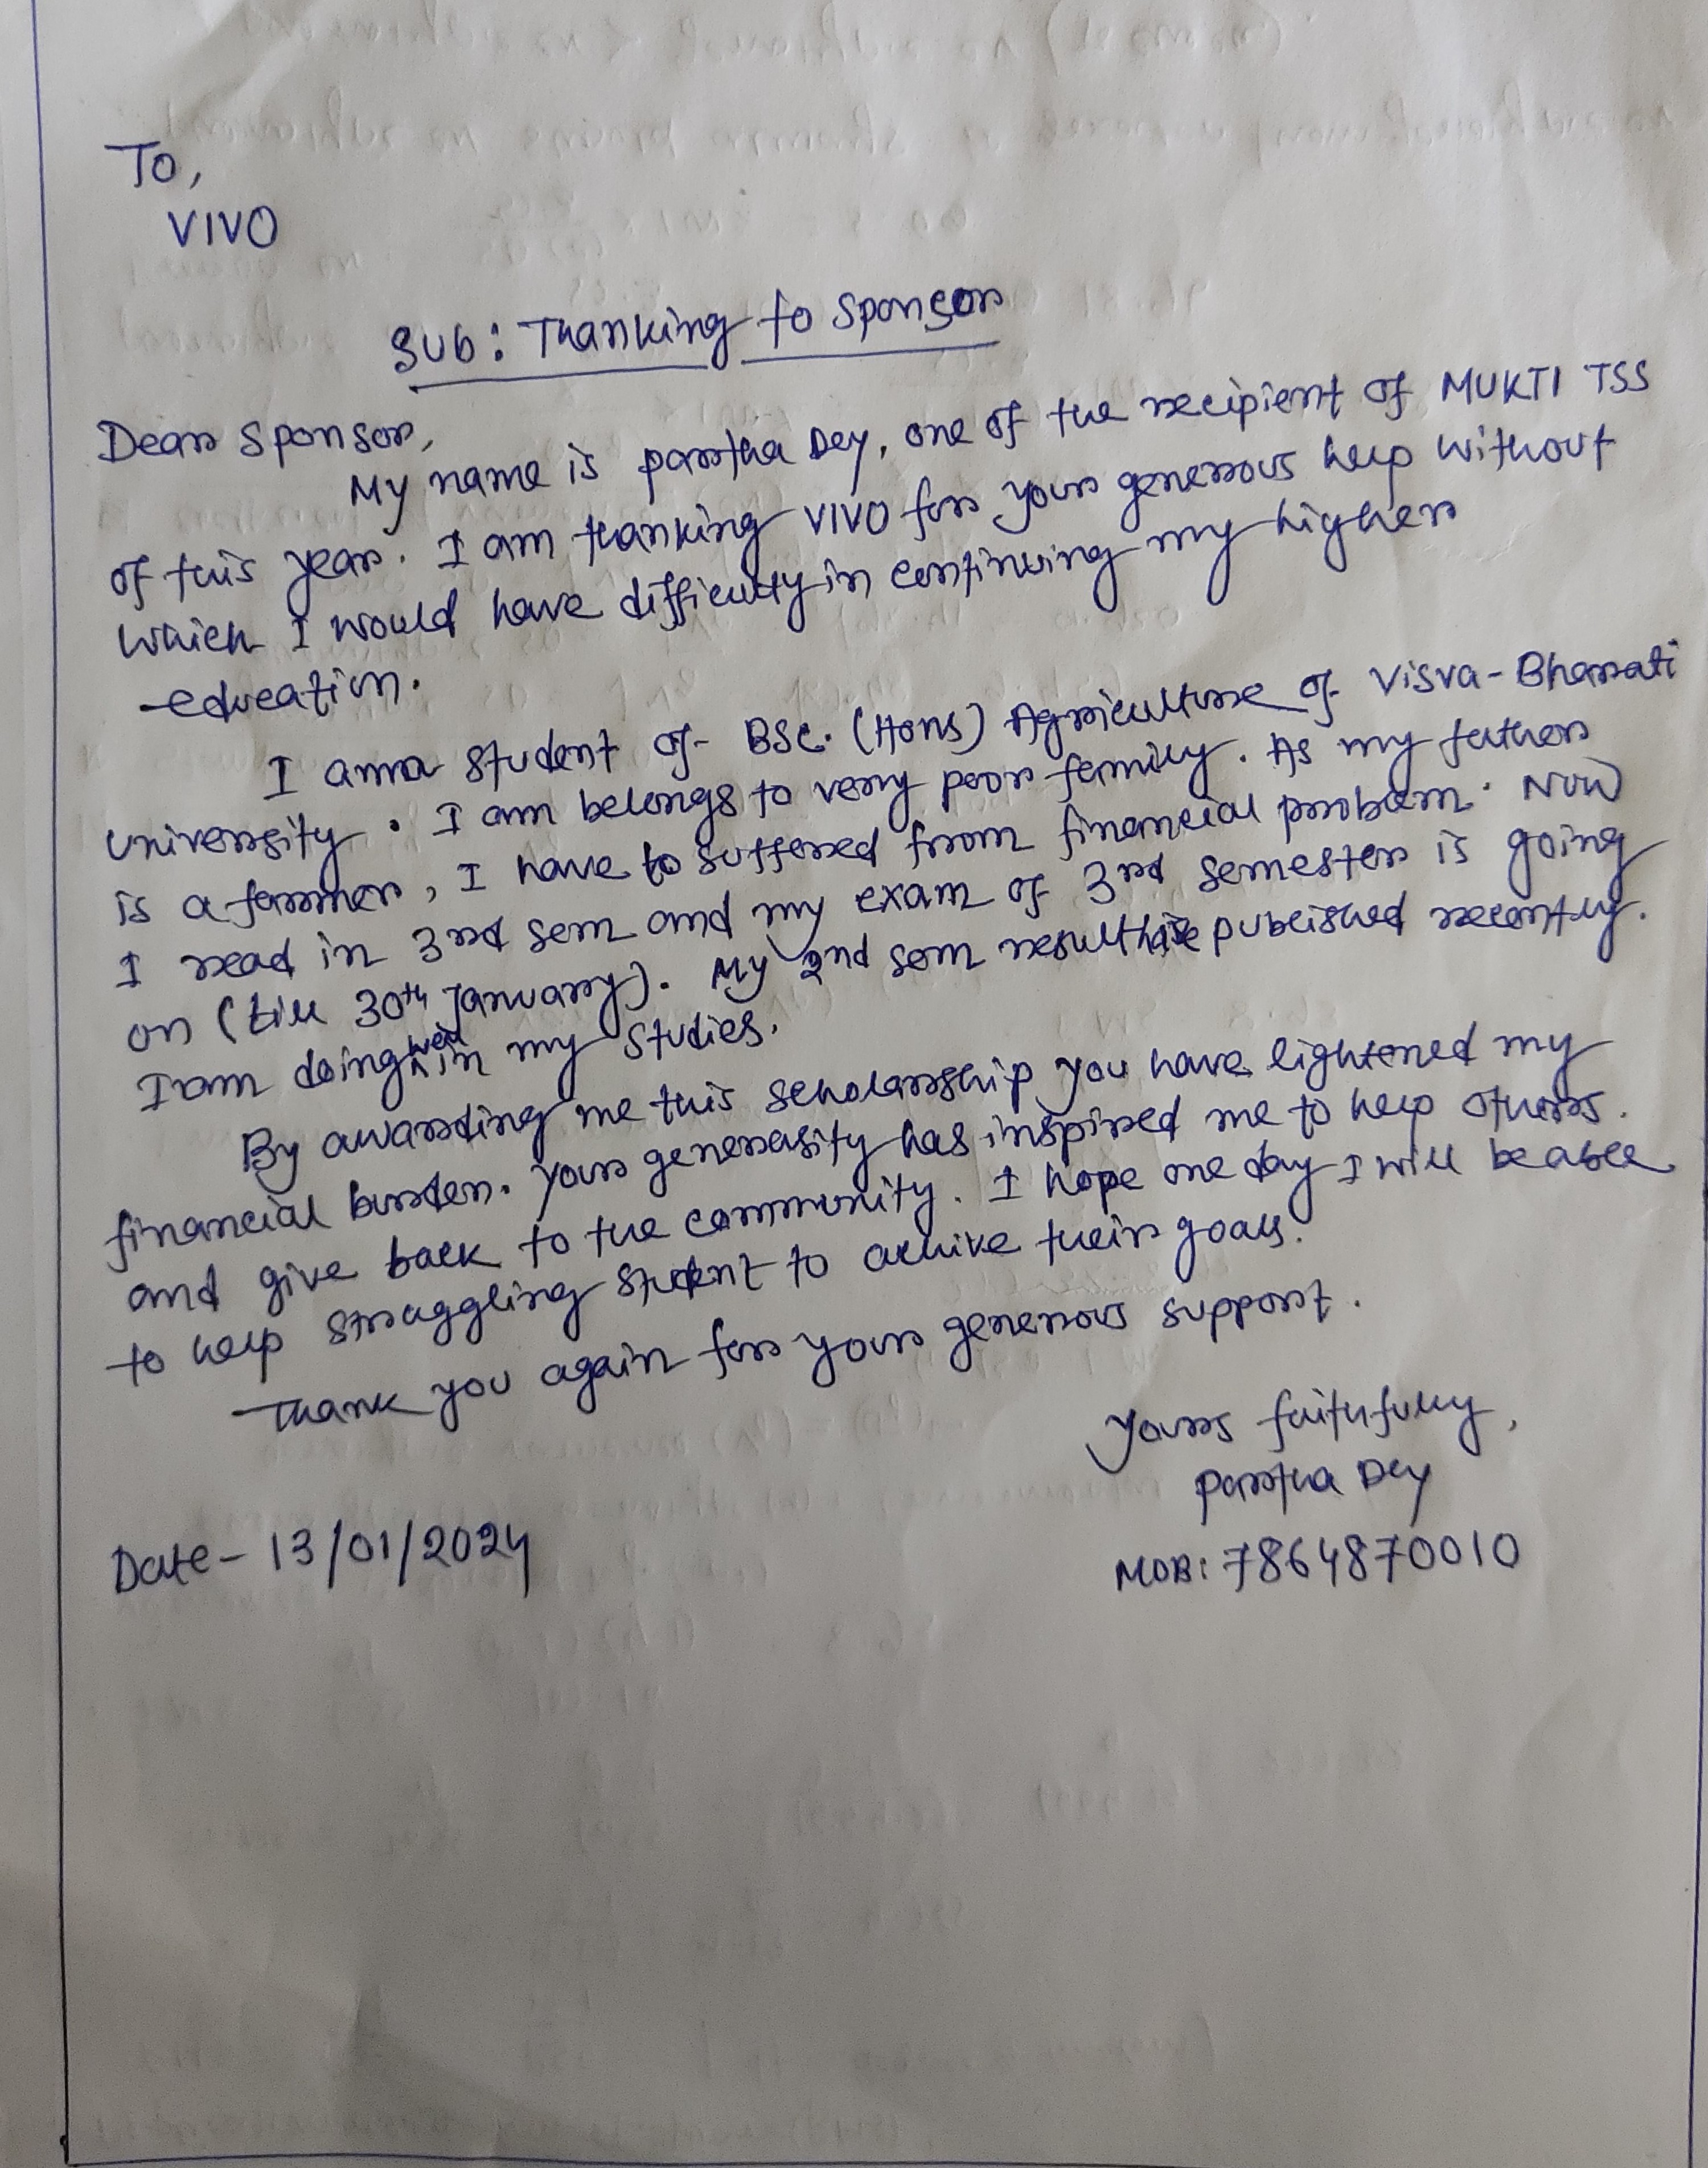 To,
VIVO
Sub: Thanking to Sponsor
Dear Sponsor,
My name is partha Dey, one of the recipient of MUKTI TSS
of this year. I am thanking VIVO for your generous help without
which I would have difficulty in continuing my higher
education.
I am a student of BSc. (Hons) Agriculture of Visva-Bharati
University. I am belongs to very poor family. As my father
is a farmer, I have to suffered from financial problem. Now
I read in 3rd sem and my exam of 3rd semester is going
on (till 30th January). My 2nd sem result have published recently.
I am doing well in my studies.
By awarding me this scholarship you have lightened my
financial burden. Your generosity has inspired me to help others
and give back to the community. I hope one day I will be able
to help straggling student to achive their goals.
Thank you again for your generous support.
Yours faithfully,
Partha Dey
Date- 13/01/2024
MOB: 7864870010